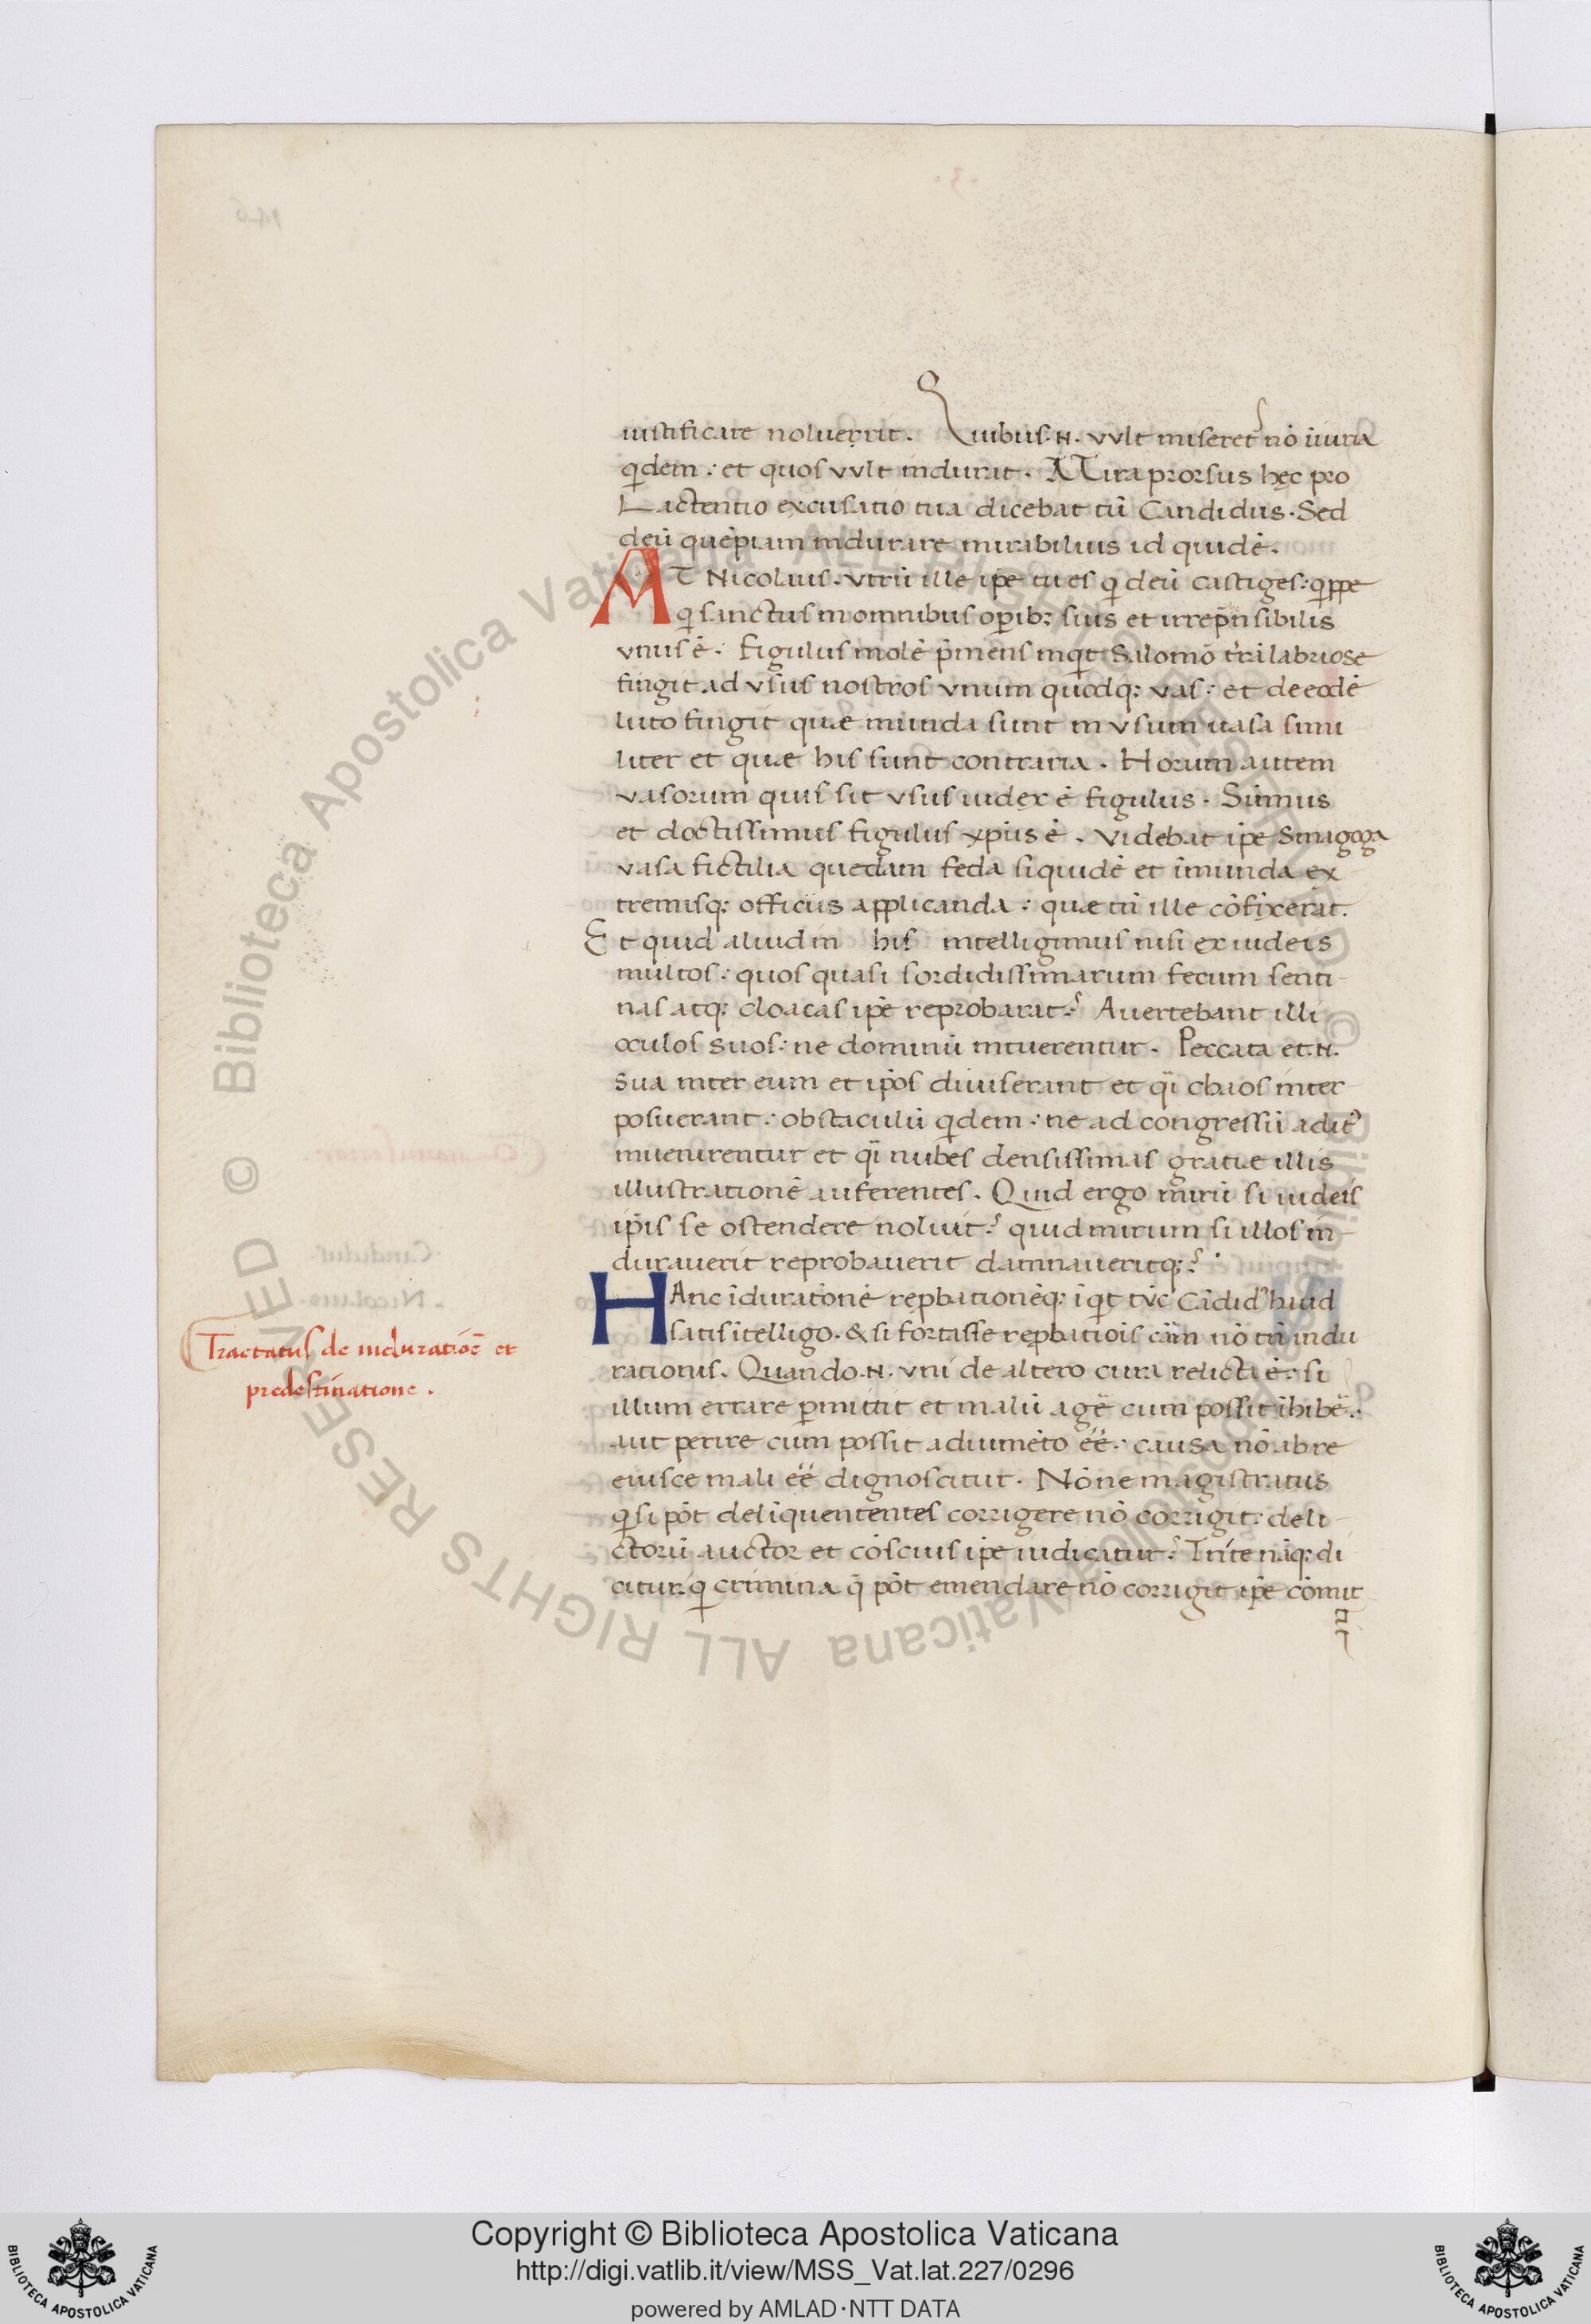 iustificare noluerit. Quibus .N. vvlt miseret nō iiuria
qdem: et quos vvlt indurat. Mira prorsus hęc pro
Lactentio excusatio tua dicebat tū Candidus. Sed
deū quēpiam indurare mirabilius id quidē.
AT Nicolaus. vtrū ille ipe tu es q deū castiges: qppe
q sanctus in omnibus opib; suis et irrepnsibilis
vnus ē. Figulus molē pmens inqt Salomō trā labriose
fingit ad vsus nostros vnum quodq; vas: et de eodē
luto fingit quæ munda sunt in vsum uasa simi
liter et quæ his sunt contraria. Horum autem
vasorum quis sit vsus iudex ē figulus. Sūmus
et doctissimus figulus xpus ē. Videbat ipe Sinagoga
vasa fictilia quedam feda siquidē et īmunda ex
tremisq; officiis applicanda: quæ tū ille cōfixerat.
Et quid aliud in his intelligimus nisi ex iudeis
multos: quos quasi sordidissimarum fecum senti-
nas atq; cloacas ipe reprobarat? Auertebant illi
oculos suos: ne dominū intuerentur. Peccata et .N.
sua inter eum et ipos diuiserant et qī chaos inter-
posuerant: obstaculū qdem: ne ad congressū adit'
inuenirentur et qī nubes densissimas gratiæ illis
illustrationē auferentes. Quid ergo mirū si iudeis
ipis se ostendere noluit? quid mirum si illos in-
durauerit reprobauerit damnaueritq;?
HAnc īduratōnē repbationēq; iqt tūc Cādid' haud
satis ītelligo. & si fortasse repbatiōis cām nō tn indu
rationis. Quando .N. vni de altero cura relicta ē: si
illum errare pmittit et malū agē cum possit īhibē:
aut perire cum possit adiumēto eē: causa nō ab re
eiusce mali eē dignoscitur. Nōne magistratus
q si pōt delīquententes corrigere nō corrigit: deli-
ctorū auctor et cōscius ipe iudicatur? Trite nāq; di
citur: q crimina q pōt emendare nō corrigit ipe cōmit
Tractatus de induratiōē et
predestinatione.
Copyright © Biblioteca Apostolica Vaticana
http://digi.vatlib.it/view/MSS_Vat.lat.227/0296
powered by AMLAD·NTT DATA
BIBLIOTECA APOSTOLICA VATICANA
BIBLIOTECA APOSTOLICA VATICANA
© Biblioteca Apostolica Vaticana ALL RIGHTS RESERVED
© Biblioteca Apostolica Vaticana ALL RIGHTS RESERVED